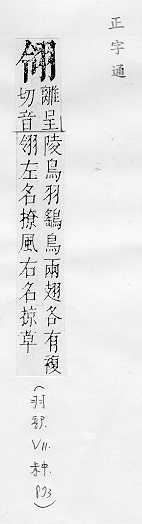 正字通
翎
離呈
切音
陵鳥羽鷂鳥兩翅各有複
翎左名撩風右名掠草
(羽部. VII.